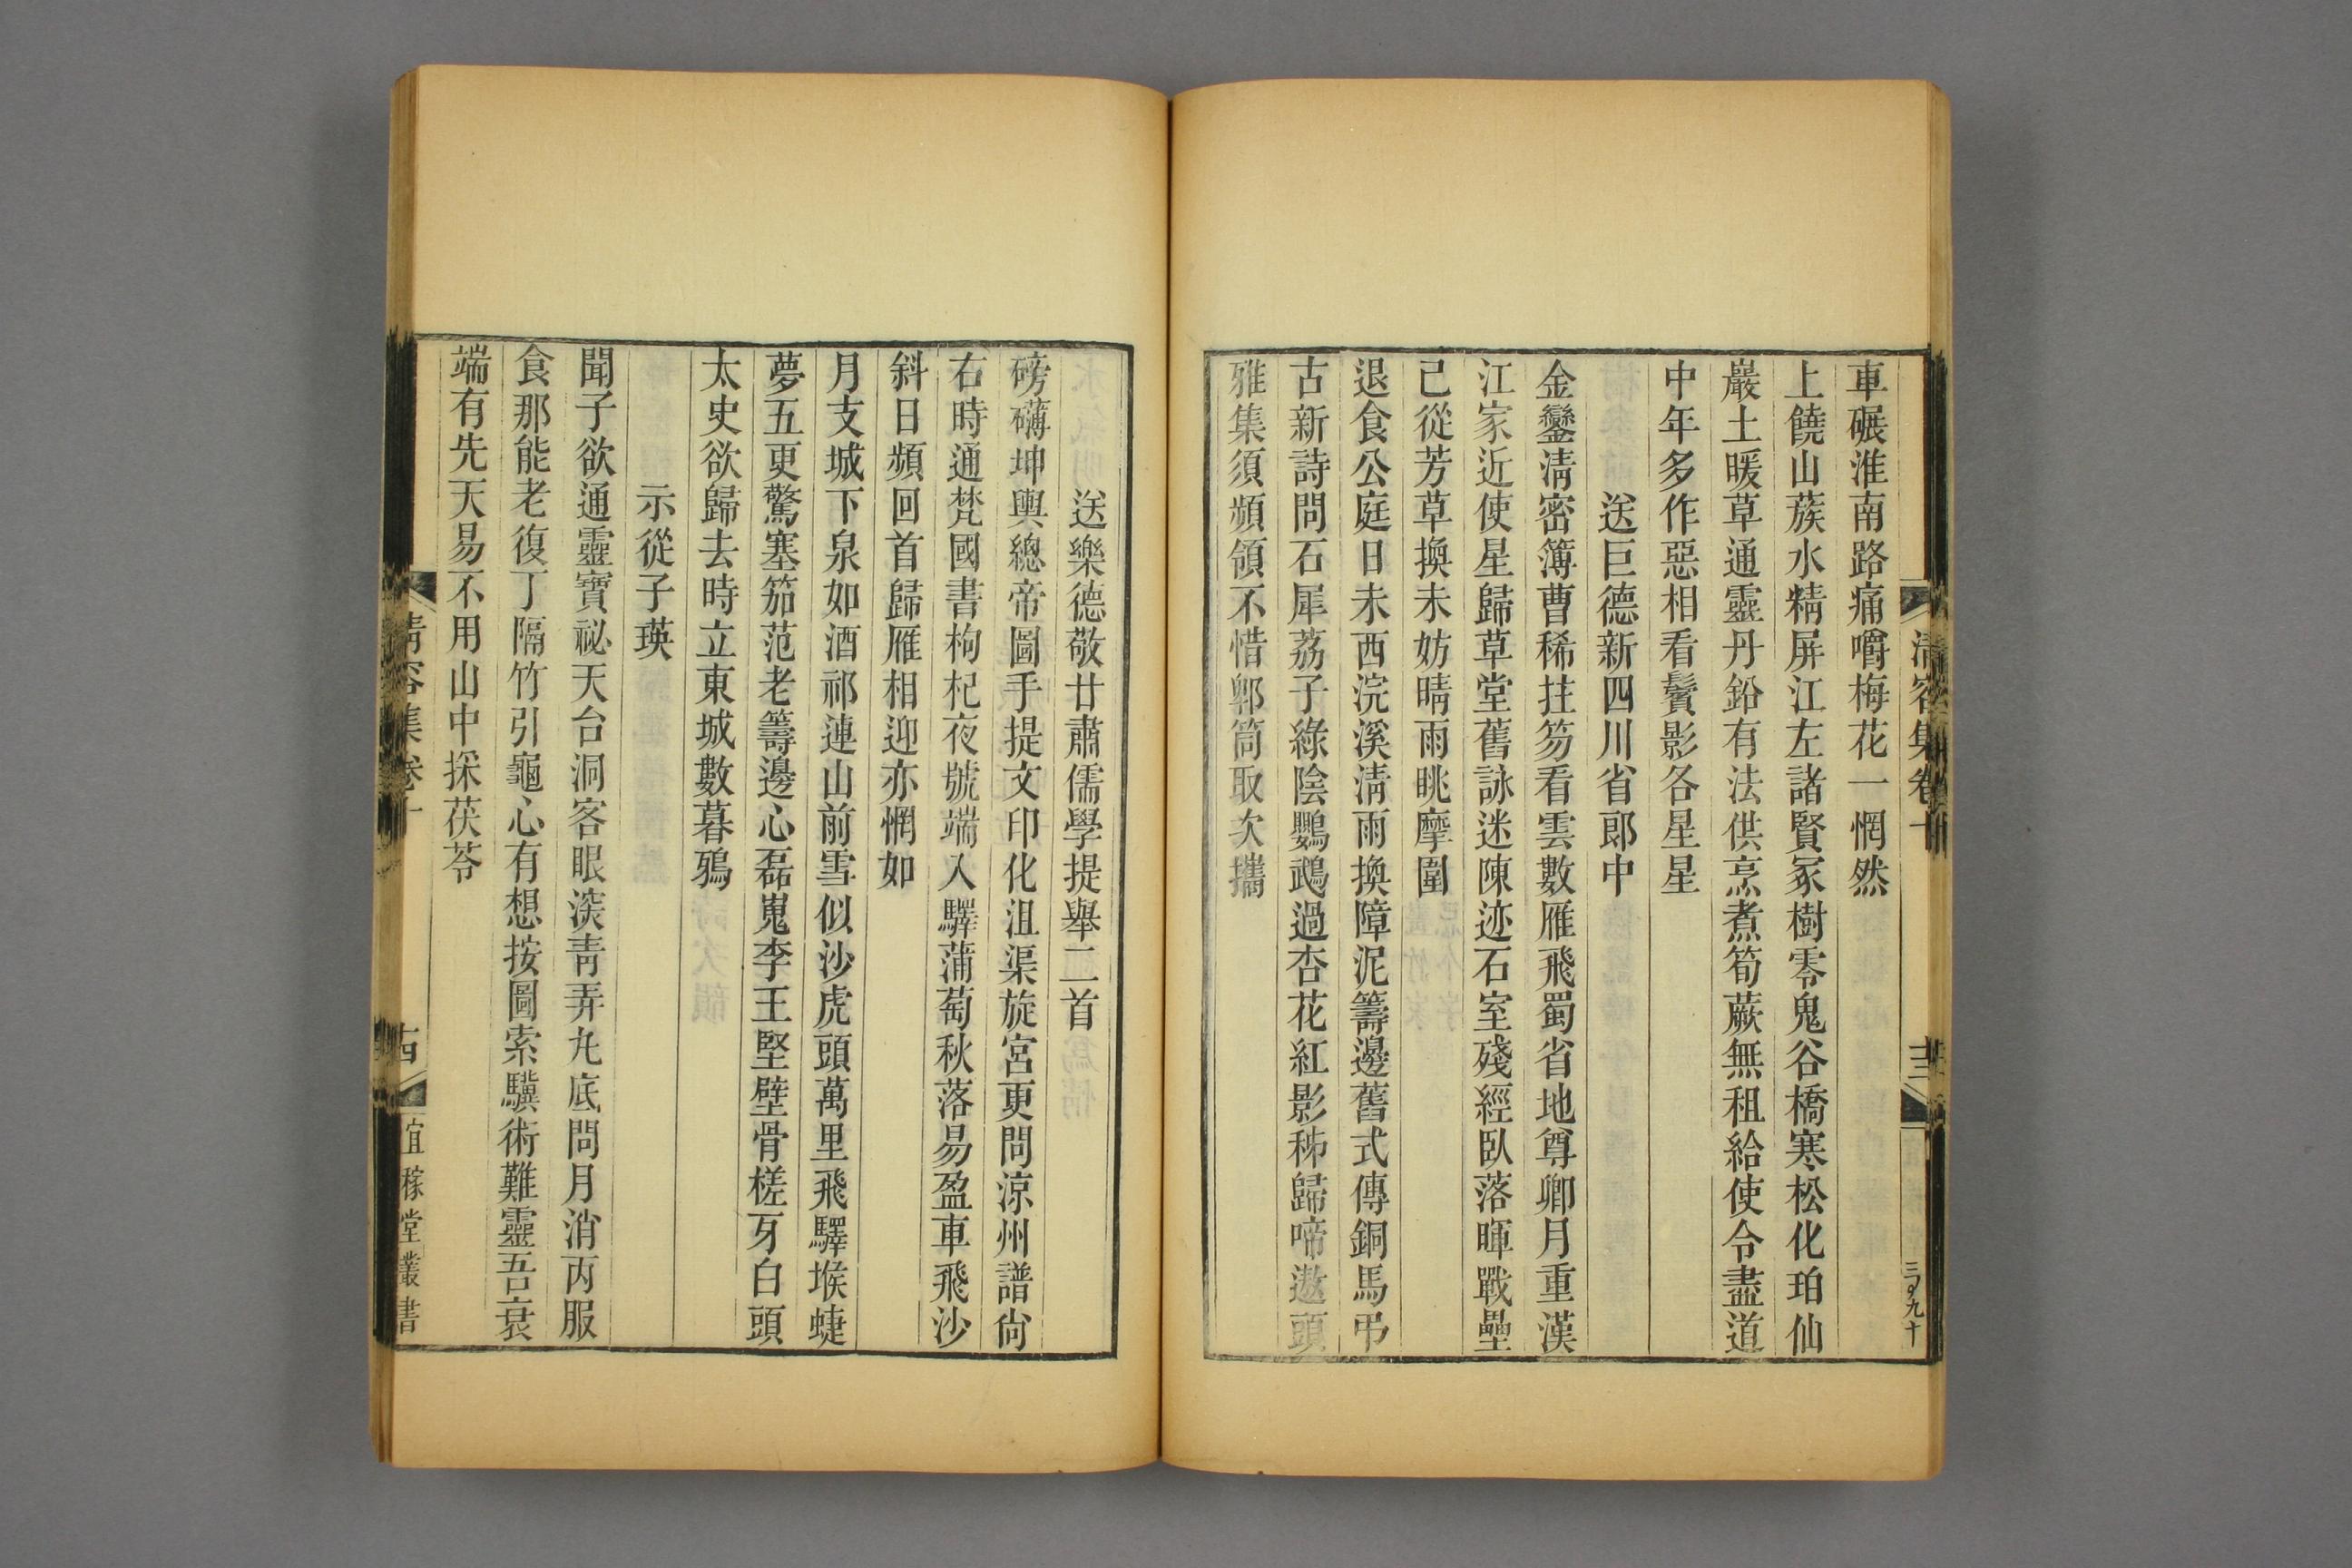 車碾淮南路痛嚼梅花一惘然
上饒山蔟水精屏江左諸賢冢樹零鬼谷橋寒松化珀仙
巖土暖草通靈丹鉛有法供烹煮筍蕨無租給使令盡道
中年多作惡相看鬢影各星星
送巨德新四川省郎中
金鑾淸密簿曹稀拄笏看雲數雁飛蜀省地尊卿月重漢
江家近使星歸草堂舊詠迷陳迹石室殘經臥落暉戰壘
已從芳草換未妨晴雨眺摩圍
退食公庭日未西浣溪淸雨換障泥籌邊舊式傳銅馬弔
古新詩問石犀荔子綠陰鸚鵡過杏花紅影秭歸啼遨頭
雅集須頻領不惜郫筒取次攜
清容集卷十
三
三百九十
送樂德敬甘肅儒學提舉二首
磅礴坤輿總帝圖手提文印化沮渠旋宮更問涼州譜尙
右時通梵國書枸杞夜號端入驛蒲萄秋落易盈車飛沙
斜日頻回首歸雁相迎亦惘如
月支城下泉如酒祁連山前雪似沙虎頭萬里飛驛堠蜨
夢五更驚塞笳范老籌邊心磊嵬李王堅壁骨槎牙白頭
太史欲歸去時立東城數暮鴉
示從子瑛
聞子欲通靈寶祕天台洞客眼滾靑弄丸底問月消丙服
食那能老復丁隔竹引龜心有想按圖索驥術難靈吾衰
端有先天易不用山中採茯苓
清容集卷十
古
宜稼堂叢書